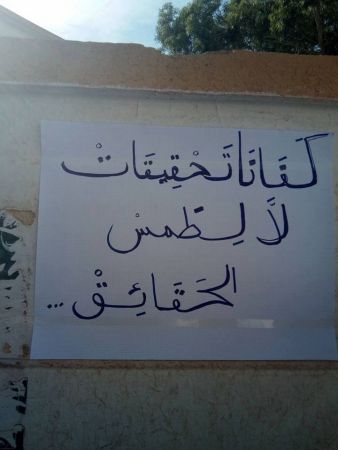 كَفَانَا تَحْقِيقَاتْ
لَا لِطَمسْ
الحَقَائِقْ ...